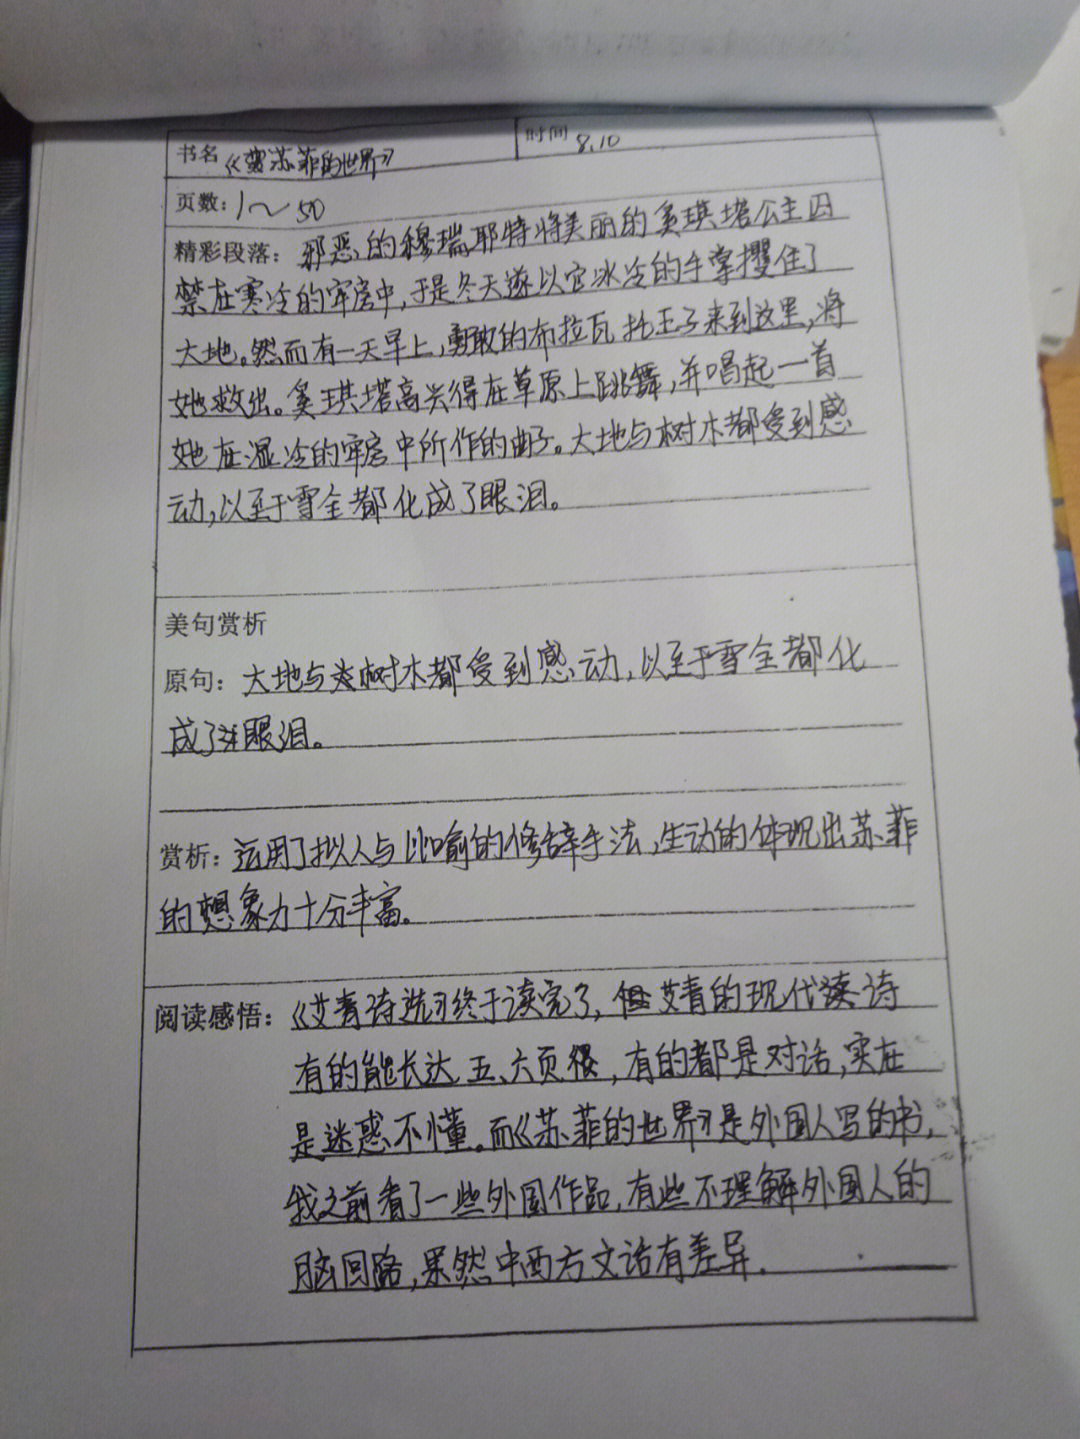 书名 《苏菲的世界》 时间 8.10
页数：1～50
精彩段落：邪恶的穆瑞耶特将美丽的奚琪塔公主囚
禁在寒冷的牢房中，于是冬天遂以它冰冷的手掌攫住了
大地。然而有一天早上，勇敢的布拉瓦托王子来到这里，将
她救出。奚琪塔高兴得在草原上跳舞，并唱起一首
她在湿冷的牢房中所作的曲子。大地与树木都受到感
动，以至于雪全都化成了眼泪。
美句赏析
原句：大地与树木都受到感动，以至于雪全都化
成了眼泪。
赏析：运用了拟人与比喻的修辞手法，生动的体现出苏菲
的想象力十分丰富。
阅读感悟：《艾青诗选》终于读完了，但艾青的现代诗
有的能长达五、六页，有的都是对话，实在
是迷惑不懂。而《苏菲的世界》是外国人写的书，
我之前看了一些外国作品，有些不理解外国人的
脑回路，果然中西方文话有差异.